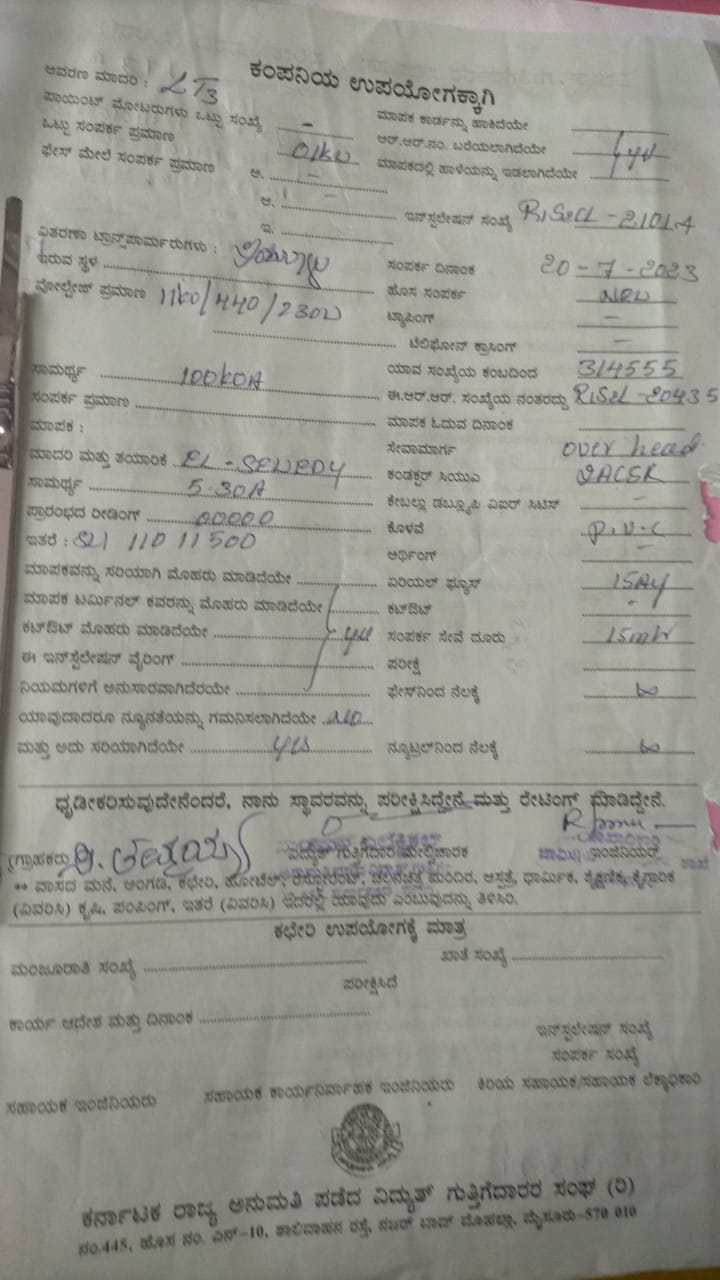 ಕಂಪನಿಯ ಉಪಯೋಗಕ್ಕಾಗಿ
ಆವರಣ ಮಾದರಿ : LT3
ಪಾಯಿಂಟ್ ಮೋಟರುಗಳು ಒಟ್ಟು ಸಂಖ್ಯೆ - ಮಾಪಕ ಕಾರ್ಡನ್ನು ಹಾಕಿದೆಯೇ
ಒಟ್ಟು ಸಂಪರ್ಕ ಪ್ರಮಾಣ 01KW ಆರ್.ಆರ್.ನಂ. ಬರೆಯಲಾಗಿದೆಯೇ
ಫೇಸ್ ಮೇಲೆ ಸಂಪರ್ಕ ಪ್ರಮಾಣ ಅ. - ಮಾಪಕದಲ್ಲಿ ಹಾಳೆಯನ್ನು ಇಡಲಾಗಿದೆಯೇ
ಆ. - ಇನ್‌ಸ್ಟಲೇಷನ್ ಸಂಖ್ಯೆ
ಇ.
ವಿತರಣಾ ಟ್ರಾನ್ಸ್‌ಫಾರ್ಮರುಗಳು :
ಇರುವ ಸ್ಥಳ ಸಂಪರ್ಕ ದಿನಾಂಕ 20-7-2023
ವೋಲ್ಟೇಜ್ ಪ್ರಮಾಣ 11KV/440/230V ಹೊಸ ಸಂಪರ್ಕ NEW
ಟ್ಯಾಪಿಂಗ್ -
ಟೆಲಿಫೋನ್ ಕ್ರಾಸಿಂಗ್ -
ಸಾಮರ್ಥ್ಯ 100KVA ಯಾವ ಸಂಖ್ಯೆಯ ಕಂಬದಿಂದ 314555
ಸಂಪರ್ಕ ಪ್ರಮಾಣ ಈ.ಆರ್.ಆರ್. ಸಂಖ್ಯೆಯ ನಂತರದ್ದು
ಮಾಪಕ : ಮಾಪಕ ಓದುವ ದಿನಾಂಕ
ಮಾದರಿ ಮತ್ತು ತಯಾರಿಕೆ ಸೇವಾಮಾರ್ಗ over head
ಸಾಮರ್ಥ್ಯ 5-30A ಕಂಡಕ್ಟರ್ ಸಿಯುಎ
ಪ್ರಾರಂಭದ ರೀಡಿಂಗ್ 00000 ಕೇಬಲ್ಲು ಡಬ್ಲ್ಯೂಪಿ ವಿಐಆರ್ ಸಿಟಿಸ್ -
ಇತರೆ : Sl 11011500 ಕೊಳವೆ P.V.C
ಆರ್ಥಿಂಗ್ -
ಮಾಪಕವನ್ನು ಸರಿಯಾಗಿ ಮೊಹರು ಮಾಡಿದೆಯೇ ಏರಿಯಲ್ ಫ್ಯೂಸ್
ಮಾಪಕ ಟರ್ಮಿನಲ್ ಕವರನ್ನು ಮೊಹರು ಮಾಡಿದೆಯೇ ಕಟ್‌ಔಟ್ -
ಕಟ್‌ಔಟ್ ಮೊಹರು ಮಾಡಿದೆಯೇ yes ಸಂಪರ್ಕ ಸೇವೆ ದೂರು 15mtr
ಈ ಇನ್‌ಸ್ಟಲೇಷನ್ ವೈರಿಂಗ್ ಪರೀಕ್ಷೆ
ನಿಯಮಗಳಿಗೆ ಅನುಸಾರವಾಗಿದೆರಯೇ ಫೇಸ್‌ನಿಂದ ನೆಲಕ್ಕೆ ∞
ಯಾವುದಾದರೂ ನ್ಯೂನತೆಯನ್ನು ಗಮನಿಸಲಾಗಿದೆಯೇ NO
ಮತ್ತು ಅದು ಸರಿಯಾಗಿದೆಯೇ yes ನ್ಯೂಟ್ರಲ್‌ನಿಂದ ನೆಲಕ್ಕೆ ∞
ಧೃಡೀಕರಿಸುವುದೇನೆಂದರೆ, ನಾನು ಸ್ಥಾವರವನ್ನು ಪರೀಕ್ಷಿಸಿದ್ದೇನೆ ಮತ್ತು ರೇಟಿಂಗ್ ಮಾಡಿದ್ದೇನೆ.
(ಗ್ರಾಹಕರು ವಿದ್ಯುತ್ ಗುತ್ತಿಗೆದಾರ ಮೇಲ್ವಿಚಾರಕ ಇಂಜಿನಿಯರ್
** ವಾಸದ ಮನೆ, ಅಂಗಡಿ, ಕಛೇರಿ, ಹೋಟೆಲ್, ರೆಸ್ಟೋರೆಂಟ್, ಚಲನಚಿತ್ರ ಮಂದಿರ, ಆಸ್ಪತ್ರೆ, ಧಾರ್ಮಿಕ, ಶೈಕ್ಷಣಿಕ, ಕೈಗಾರಿಕ
(ವಿವರಿಸಿ) ಕೃಷಿ, ಪಂಪಿಂಗ್, ಇತರೆ (ವಿವರಿಸಿ) ಇದರಲ್ಲಿ ಯಾವುದು ಎಂಬುವುದನ್ನು ತಿಳಿಸಿರಿ.
ಕಛೇರಿ ಉಪಯೋಗಕ್ಕೆ ಮಾತ್ರ
ಮಂಜೂರಾತಿ ಸಂಖ್ಯೆ ಖಾತೆ ಸಂಖ್ಯೆ
ಪರೀಕ್ಷಿಸಿದೆ
ಕಾರ್ಯ ಆದೇಶ ಮತ್ತು ದಿನಾಂಕ
ಇನ್‌ಸ್ಟಲೇಷನ್ ಸಂಖ್ಯೆ
ಸಂಪರ್ಕ ಸಂಖ್ಯೆ
ಸಹಾಯಕ ಇಂಜಿನಿಯರು ಸಹಾಯಕ ಕಾರ್ಯನಿರ್ವಾಹಕ ಇಂಜಿನಿಯರು ಕಿರಿಯ ಸಹಾಯಕ/ಸಹಾಯಕ ಲೆಕ್ಕಾಧಿಕಾರಿ
ಕರ್ನಾಟಕ ರಾಜ್ಯ ಅನುಮತಿ ಪಡೆದ ವಿದ್ಯುತ್ ಗುತ್ತಿಗೆದಾರರ ಸಂಘ (ರಿ)
ನಂ.445, ಹೊಸ ನಂ. ಎನ್-10, ಶಾಲಿವಾಹನ ರಸ್ತೆ, ನಜರ್ ಬಾದ್ ಮೊಹಲ್ಲಾ, ಮೈಸೂರು-570 010